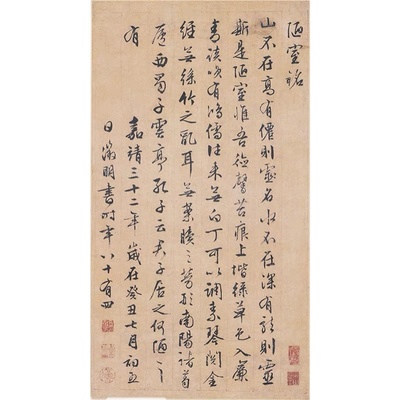 陋室銘
山不在高有僊則靈名水不在深有龍則靈
斯是陋室惟吾德馨苔痕上堦綠草色入簾
青談咲有鴻儒往來無白丁可以調素琴閱金
經無絲竹之亂耳無案牘之勞形南陽諸葛
廬西蜀子雲亭孔子云夫子居之何陋之
有 嘉靖三十二年歲在癸丑七月初五
日徵明書時年八十有四